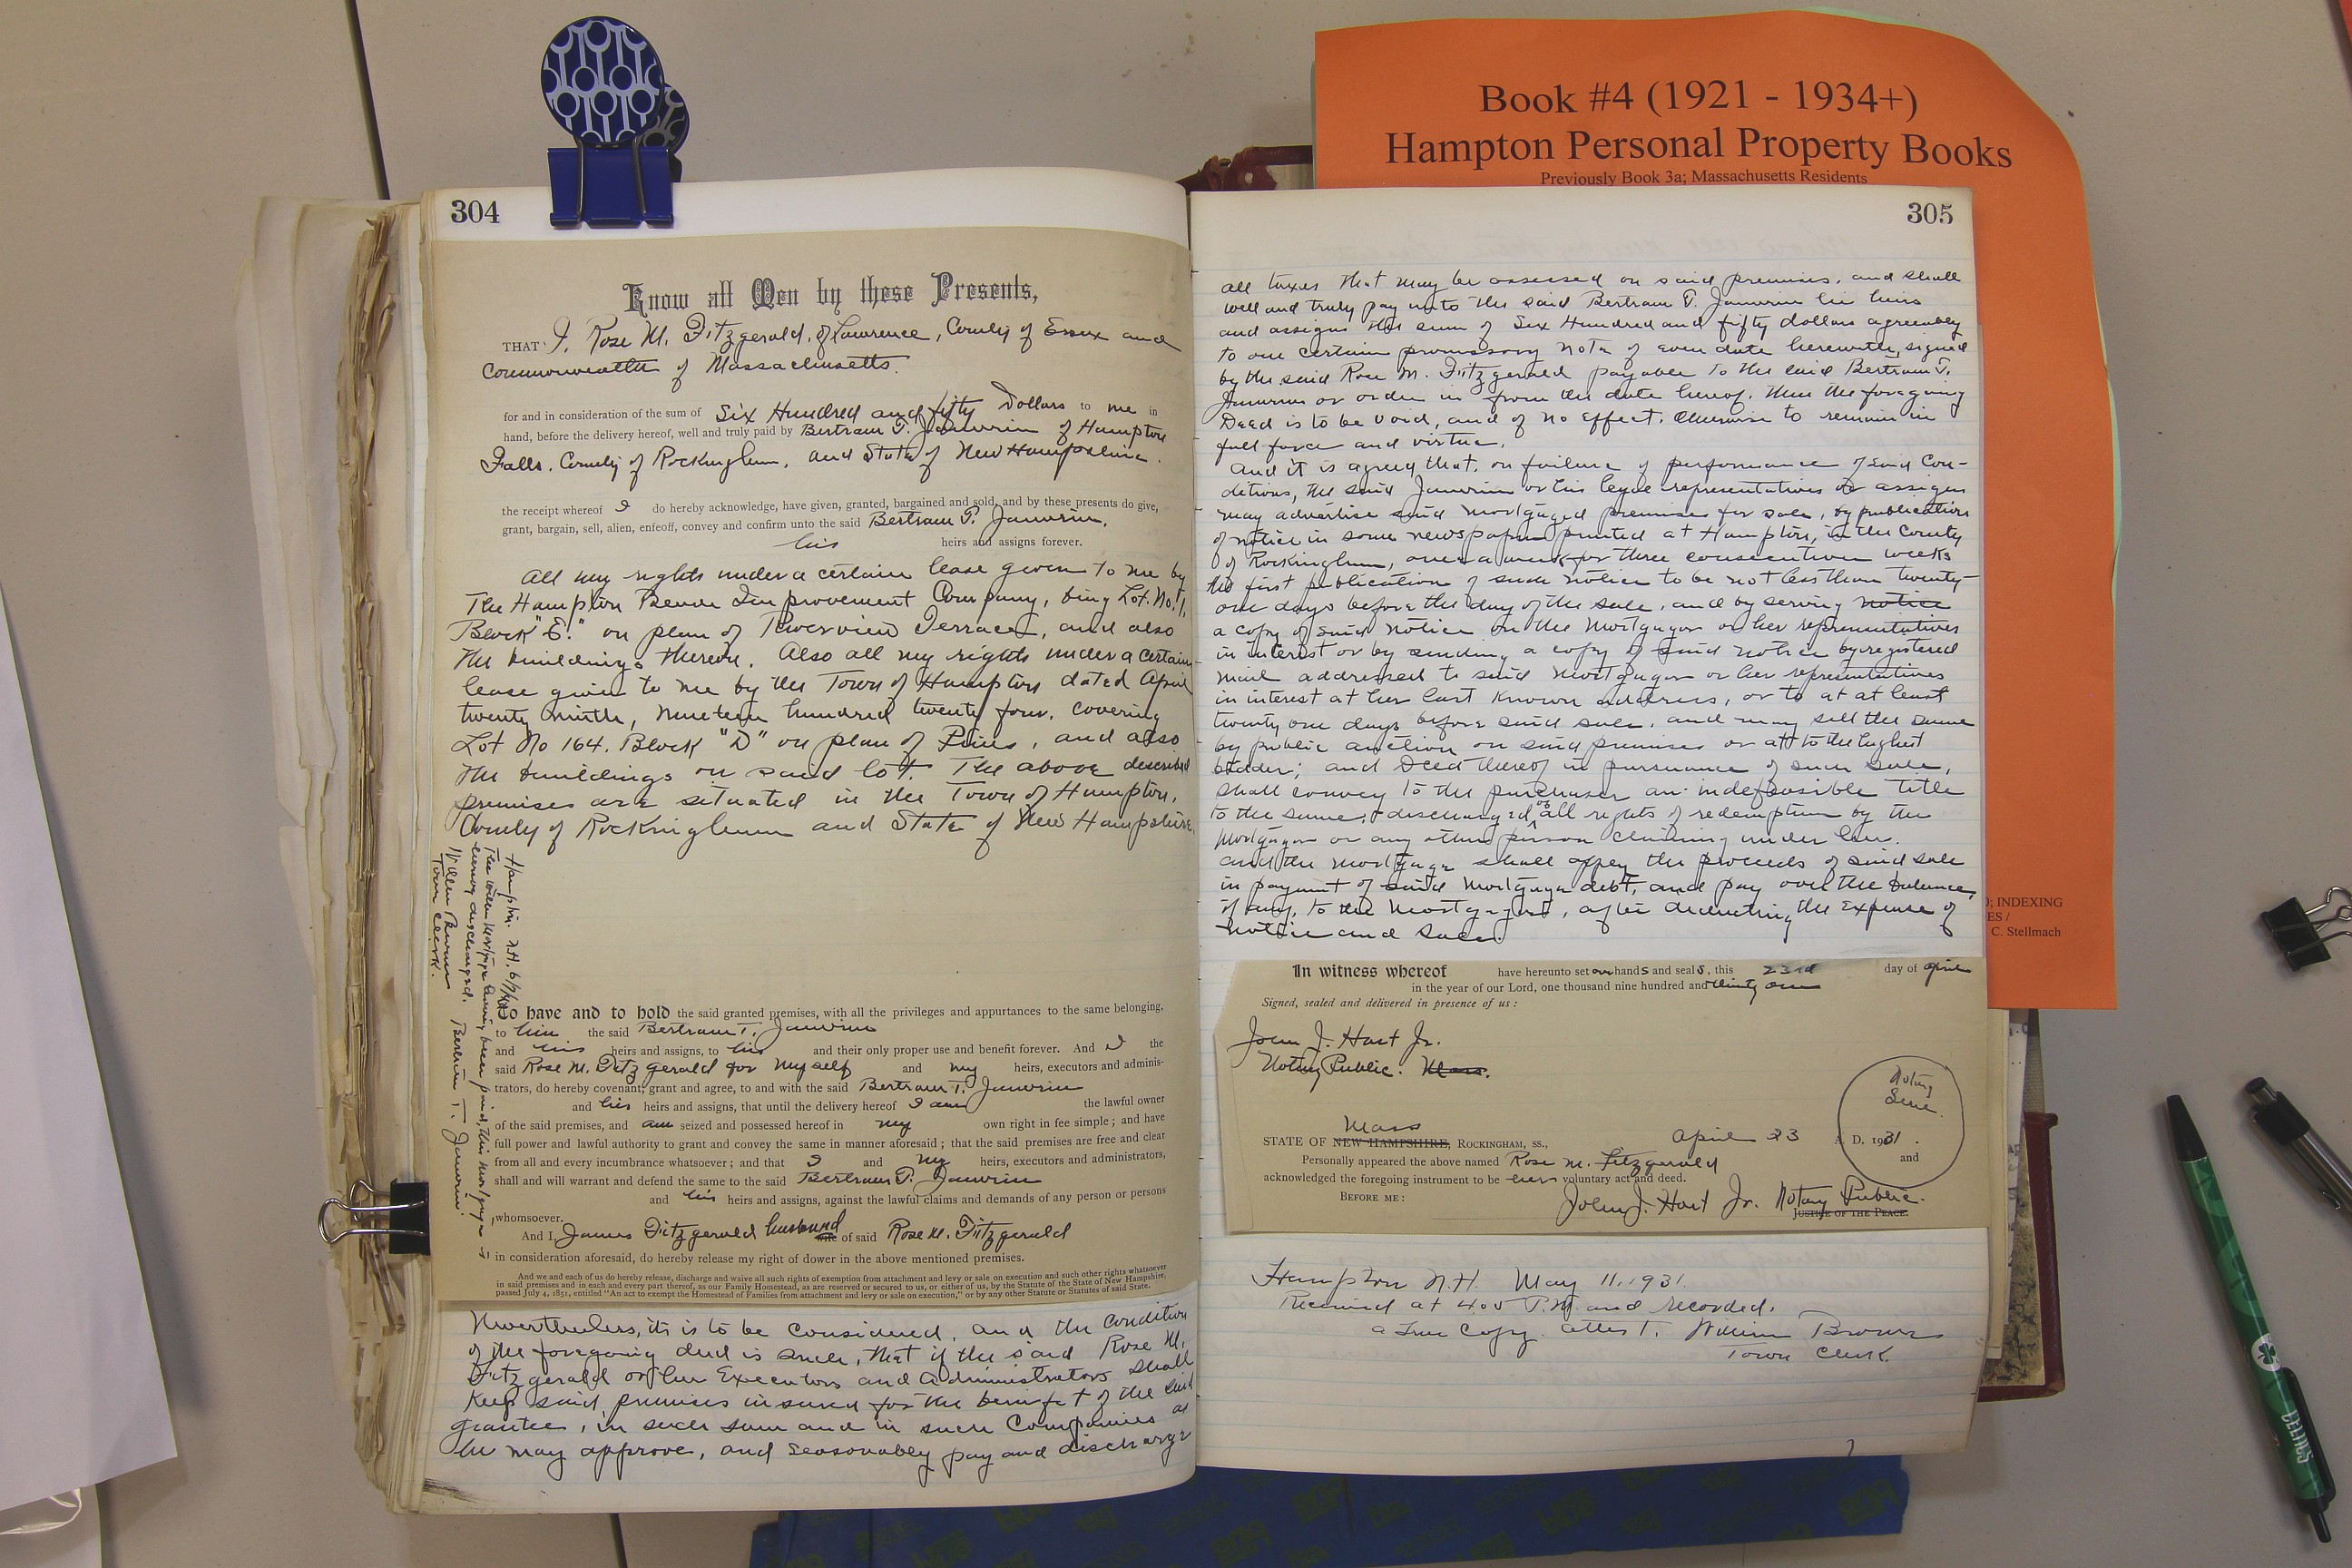 Book #4 (1921 - 1934+)
Hampton Personal Property Books
Previously Book 3a; Massachusetts Residents
; INDEXING
ES /
C. Stellmach
304
Know all Men by these Presents,
THAT I, Rose M. Fitzgerald, of Lawrence, County of Essex and
Commonwealth of Massachusetts.
for and in consideration of the sum of Six Hundred and fifty Dollars to me in
hand, before the delivery hereof, well and truly paid by Bertram T. Janvrin of Hampton
Falls, County of Rockingham, and State of New Hampshire.
the receipt whereof I do hereby acknowledge, have given, granted, bargained and sold, and by these presents do give,
grant, bargain, sell, alien, enfeoff, convey and confirm unto the said Bertram T. Janvrin,
his heirs and assigns forever.
All my rights under a certain lease given to me by
The Hampton Beach Improvement Company, being Lot. No. 1,
Block "E." on plan of Riverview Terrace, and also
the buildings thereon. Also all my rights under a certain
lease given to me by the Town of Hampton dated April
twenty ninth, nineteen hundred twenty four, covering
Lot No 164. Block "D" on plan of Pines, and also
the buildings on said lot. The above described
premises are situated in the Town of Hampton,
County of Rockingham and State of New Hampshire.
Hampton. N.H.
The within mortgage having been paid, this mortgage is
hereby discharged. Bertram T. Janvrin.
William Brown
Town Clerk.
To have and to hold the said granted premises, with all the privileges and appurtances to the same belonging,
to him the said Bertram T. Janvrin
and his heirs and assigns, to his and their only proper use and benefit forever. And I the
said Rose M. Fitzgerald for myself and my heirs, executors and adminis-
trators, do hereby covenant, grant and agree, to and with the said Bertram T. Janvrin
and his heirs and assigns, that until the delivery hereof I am the lawful owner
of the said premises, and am seized and possessed hereof in my own right in fee simple; and have
full power and lawful authority to grant and convey the same in manner aforesaid; that the said premises are free and clear
from all and every incumbrance whatsoever; and that I and my heirs, executors and administrators,
shall and will warrant and defend the same to the said Bertram T. Janvrin
and his heirs and assigns, against the lawful claims and demands of any person or persons
whomsoever.
And I, James Fitzgerald husband wife of said Rose M. Fitzgerald
in consideration aforesaid, do hereby release my right of dower in the above mentioned premises.
And we and each of us do hereby release, discharge and waive all such rights of exemption from attachment and levy or sale on execution and such other rights whatsoever
in said premises and in each and every part thereof, as our Family Homestead, as are reserved or secured to us, or either of us, by the Statute of the State of New Hampshire,
passed July 4, 1851, entitled "An act to exempt the Homestead of Families from attachment and levy or sale on execution," or by any other Statute or Statutes of said State.
Nevertheless, it is to be considered, and the condition
of the foregoing deed is such, that if the said Rose M.
Fitzgerald or her Executors and Administrators shall
keep said premises insured for the benefit of the said
grantee, in such sum and in such Companies as
he may approve, and seasonably pay and discharge
305
all taxes that may be assessed on said premises, and shall
well and truly pay unto the said Bertram T. Janvrin his heirs
and assigns the sum of Six Hundred and fifty dollars agreeably
to one certain promissory note of even date herewith, signed
by the said Rose M. Fitzgerald payable to the said Bertram T.
Janvrin or order in from the date hereof. then the foregoing
Deed is to be void, and of no effect. Otherwise to remain in
full force and virtue.
And it is agreed, that, on failure of performance of said Con-
ditions, the said Janvrin or his legal representatives or assigns
may advertise said mortgaged premises for sale, by publication
of notice in some newspaper printed at Hampton, in the County
of Rockingham, once a week for three consecutive weeks
the first publication of such notice to be not less than twenty-
one days before the day of the sale, and by serving notice
a copy of said notice on the Mortgagor or her representatives
in interest or by sending a copy of said notice by registered
mail addressed to said Mortgagor or her representatives
in interest at her last known address, or to at at least
twenty one days before said sale, and may sell the same
by public auction on said premises or at to the highest
bidder; and Deed thereof in pursuance of such sale,
shall convey to the purchaser an indefeasible title
to the same, + discharged of all rights of redemption by the
Mortgagor or any other person claiming under law.
and the Mortgagee shall apply the proceeds of said sale
in payment of said Mortgage debt, and pay over the balance,
if any, to the Mortgagor, after deducting the expense of
notice and sale.
In witness whereof have hereunto set our hands and seals, this 23rd day of April
in the year of our Lord, one thousand nine hundred and thirty one
Signed, sealed and delivered in presence of us:
John J. Hart Jr.
Notary Public. Mass.
Notary
Seal.
Mass
STATE OF NEW HAMPSHIRE, ROCKINGHAM, SS., April 23 A. D. 1931.
Personally appeared the above named Rose M. Fitzgerald and
acknowledged the foregoing instrument to be her voluntary act and deed.
BEFORE ME: John J. Hart Jr. Notary Public.
JUSTICE OF THE PEACE.
Hampton N.H. May 11, 1931.
Received at 4.05 P.M. and recorded.
a True Copy. attest. William Brown
Town Clerk.
CELTICS